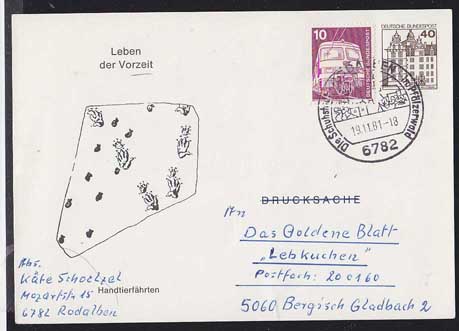 Leben
der Vorzeit
10
DEUTSCHE BUNDESPOST
DEUTSCHE BUNDESPOST
40
19.11.81-18
6782
DRUCKSACHE
An
Das Goldene Blatt
„Lebkuchen"
Postfach: 200160
5060 Bergisch Gladbach 2
Abs.
Käte Schoelzel
Mozartstr. 15
6782 Rodalben
Handtierfährten